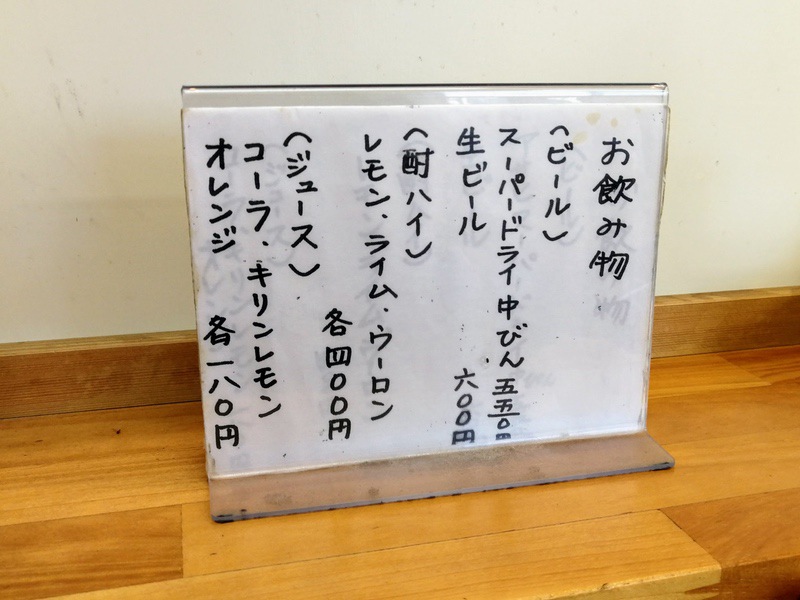 お飲み物
(ビール)
スーパードライ中びん 五五〇円
生ビール 六〇〇円
(酎ハイ)
レモン、ライム、ウーロン
各四〇〇円
(ジュース)
コーラ、キリンレモン
オレンジ 各一八〇円